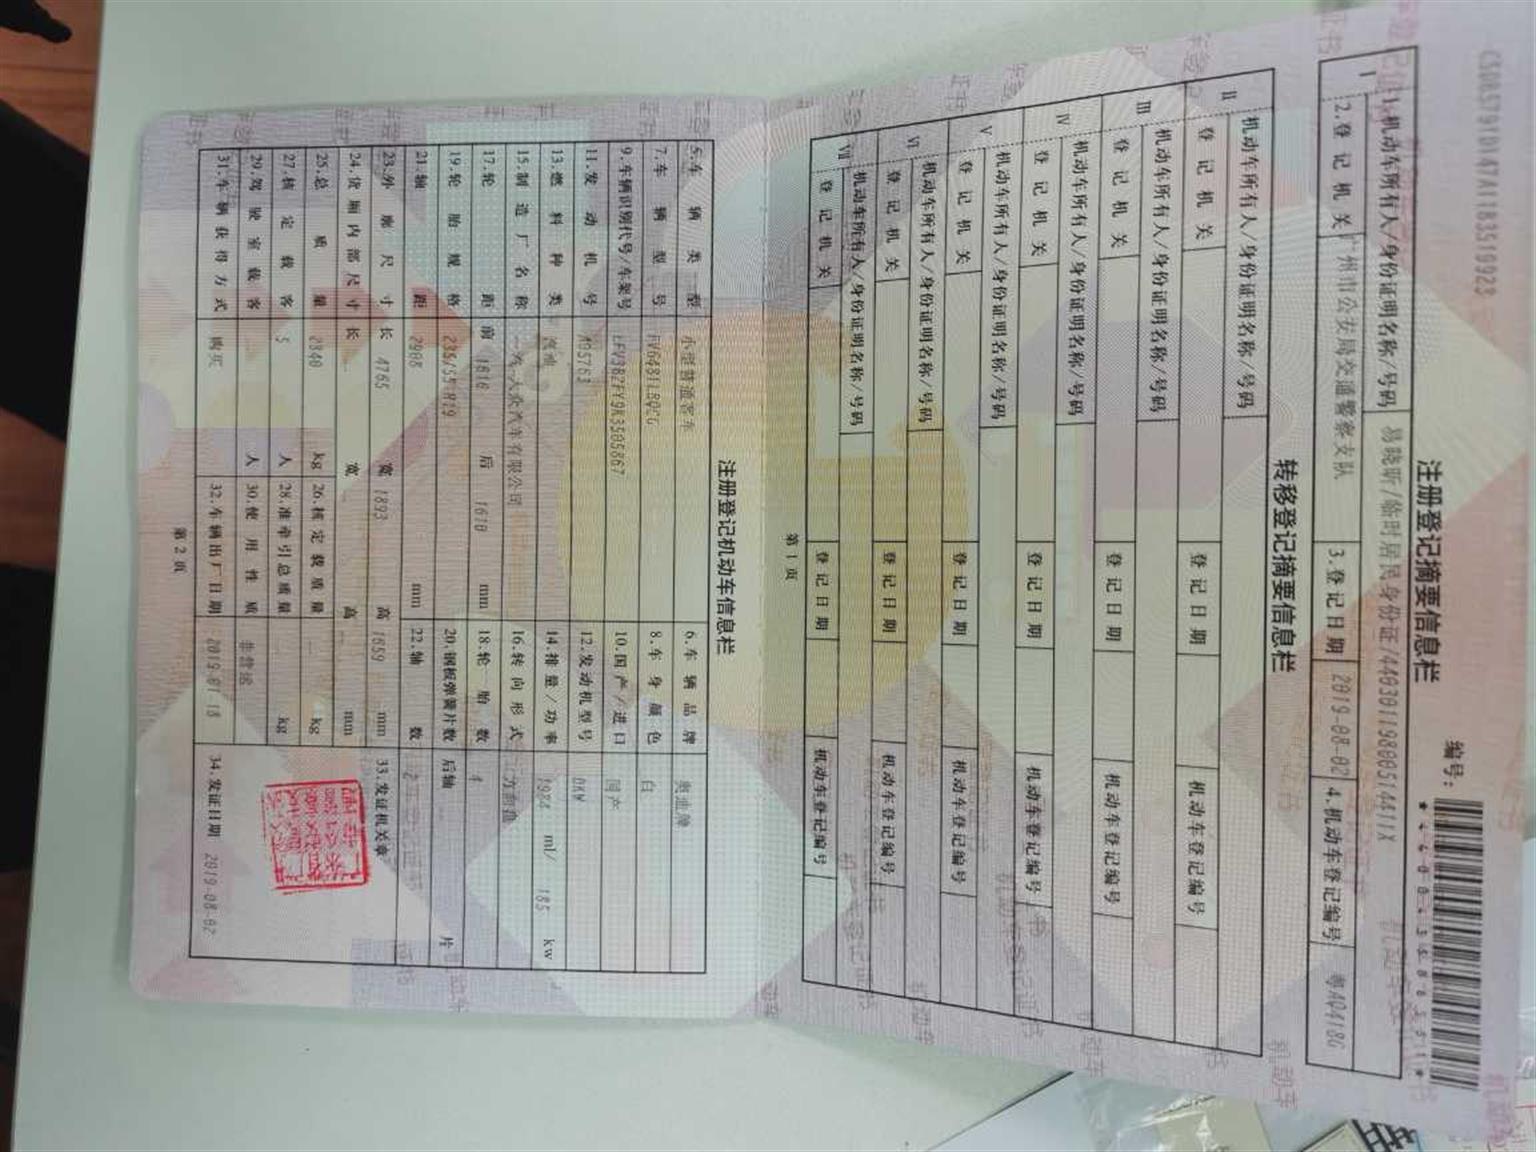 CS0R5791D147A1183519923
编号:
注册登记摘要信息栏
I 1.机动车所有人/身份证明名称/号码 易晓昕/临时居民身份证/44030119800514411X
2.登记机关 广州市公安局交通警察支队 3.登记日期 2019-08-02 4.机动车登记编号 粤AQ418G
转移登记摘要信息栏
II 机动车所有人/身份证明名称/号码
登记机关 登记日期 机动车登记编号
III 机动车所有人/身份证明名称/号码
登记机关 登记日期 机动车登记编号
IV 机动车所有人/身份证明名称/号码
登记机关 登记日期 机动车登记编号
V 机动车所有人/身份证明名称/号码
登记机关 登记日期 机动车登记编号
VI 机动车所有人/身份证明名称/号码
登记机关 登记日期 机动车登记编号
VII 机动车所有人/身份证明名称/号码
登记机关 登记日期 机动车登记编号
第1页
注册登记机动车信息栏
5.车辆类型 小型普通客车 6.车辆品牌 奥迪牌
7.车辆型号 FV6481LBQCG 8.车身颜色 白
9.车辆识别代号/车架号 LFV3B2FY9K3505867 10.国产/进口 国产
11.发动机号 A95763 12.发动机型号 DKW
13.燃料种类 汽油 14.排量/功率 1984 ml/ 185 kw
15.制造厂名称 一汽-大众汽车有限公司 16.转向形式 方向盘
17.轮距 前 1616 后 1610 mm 18.轮胎数 4
19.轮胎规格 235/55 R19 20.钢板弹簧片数 后轴 片
21.轴距 2908 mm 22.轴数 2
23.外廓尺寸 长 4765 宽 1893 高 1659 mm 33.发证机关章
24.货厢内部尺寸 长 宽 高 mm
25.总质量 2340 kg 26.核定载质量 kg
27.核定载客 5 人 28.准牵引总质量 kg
29.驾驶室载客 人 30.使用性质 非营运
31.车辆获得方式 购买 32.车辆出厂日期 2019-01-18 34.发证日期 2019-08-02
第2页